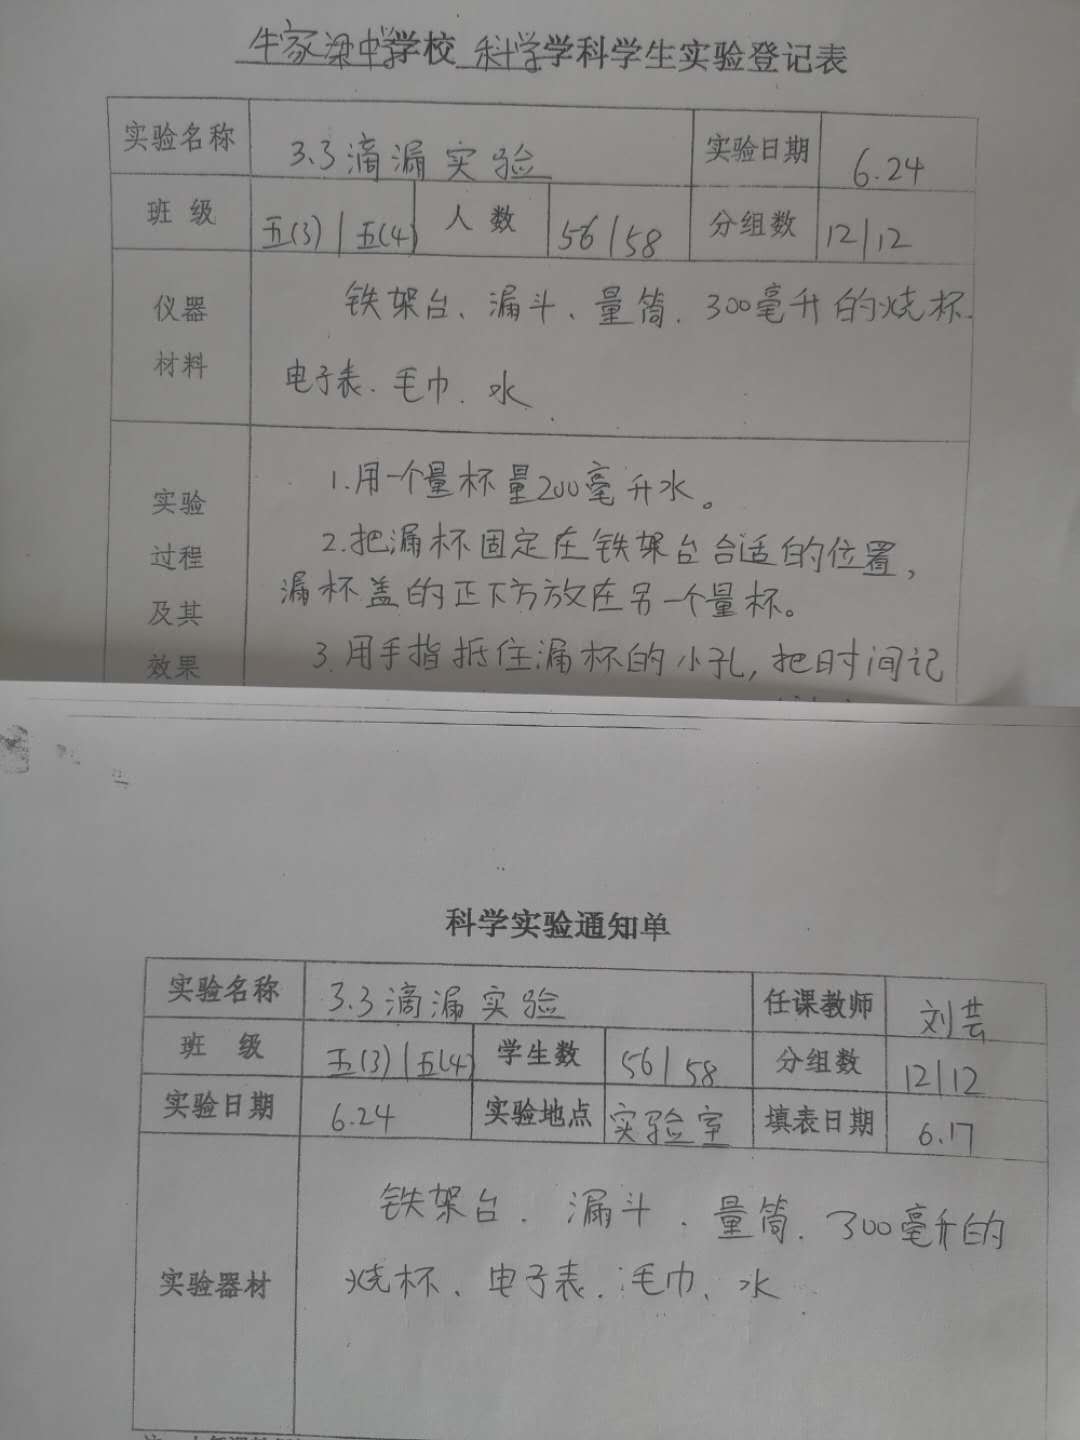 牛家梁中学学校 科学学科学生实验登记表
实验名称 3.3滴漏实验 实验日期 6.24
班 级 五(3)|五(4) 人 数 56|58 分组数 12|12
仪器
材料
铁架台、漏斗、量筒、300毫升的烧杯、
电子表、毛巾、水
实验
过程
及其
效果
1.用一个量杯量200毫升水。
2.把漏杯固定在铁架台合适的位置,
漏杯盖的正下方放在另一个量杯。
3.用手指抵住漏杯的小孔,把时间记
科学实验通知单
实验名称 3.3滴漏实验 任课教师 刘芸
班 级 五(3)|五(4) 学生数 56|58 分组数 12|12
实验日期 6.24 实验地点 实验室 填表日期 6.17
实验器材
铁架台、漏斗、量筒、300毫升的
烧杯、电子表、毛巾、水